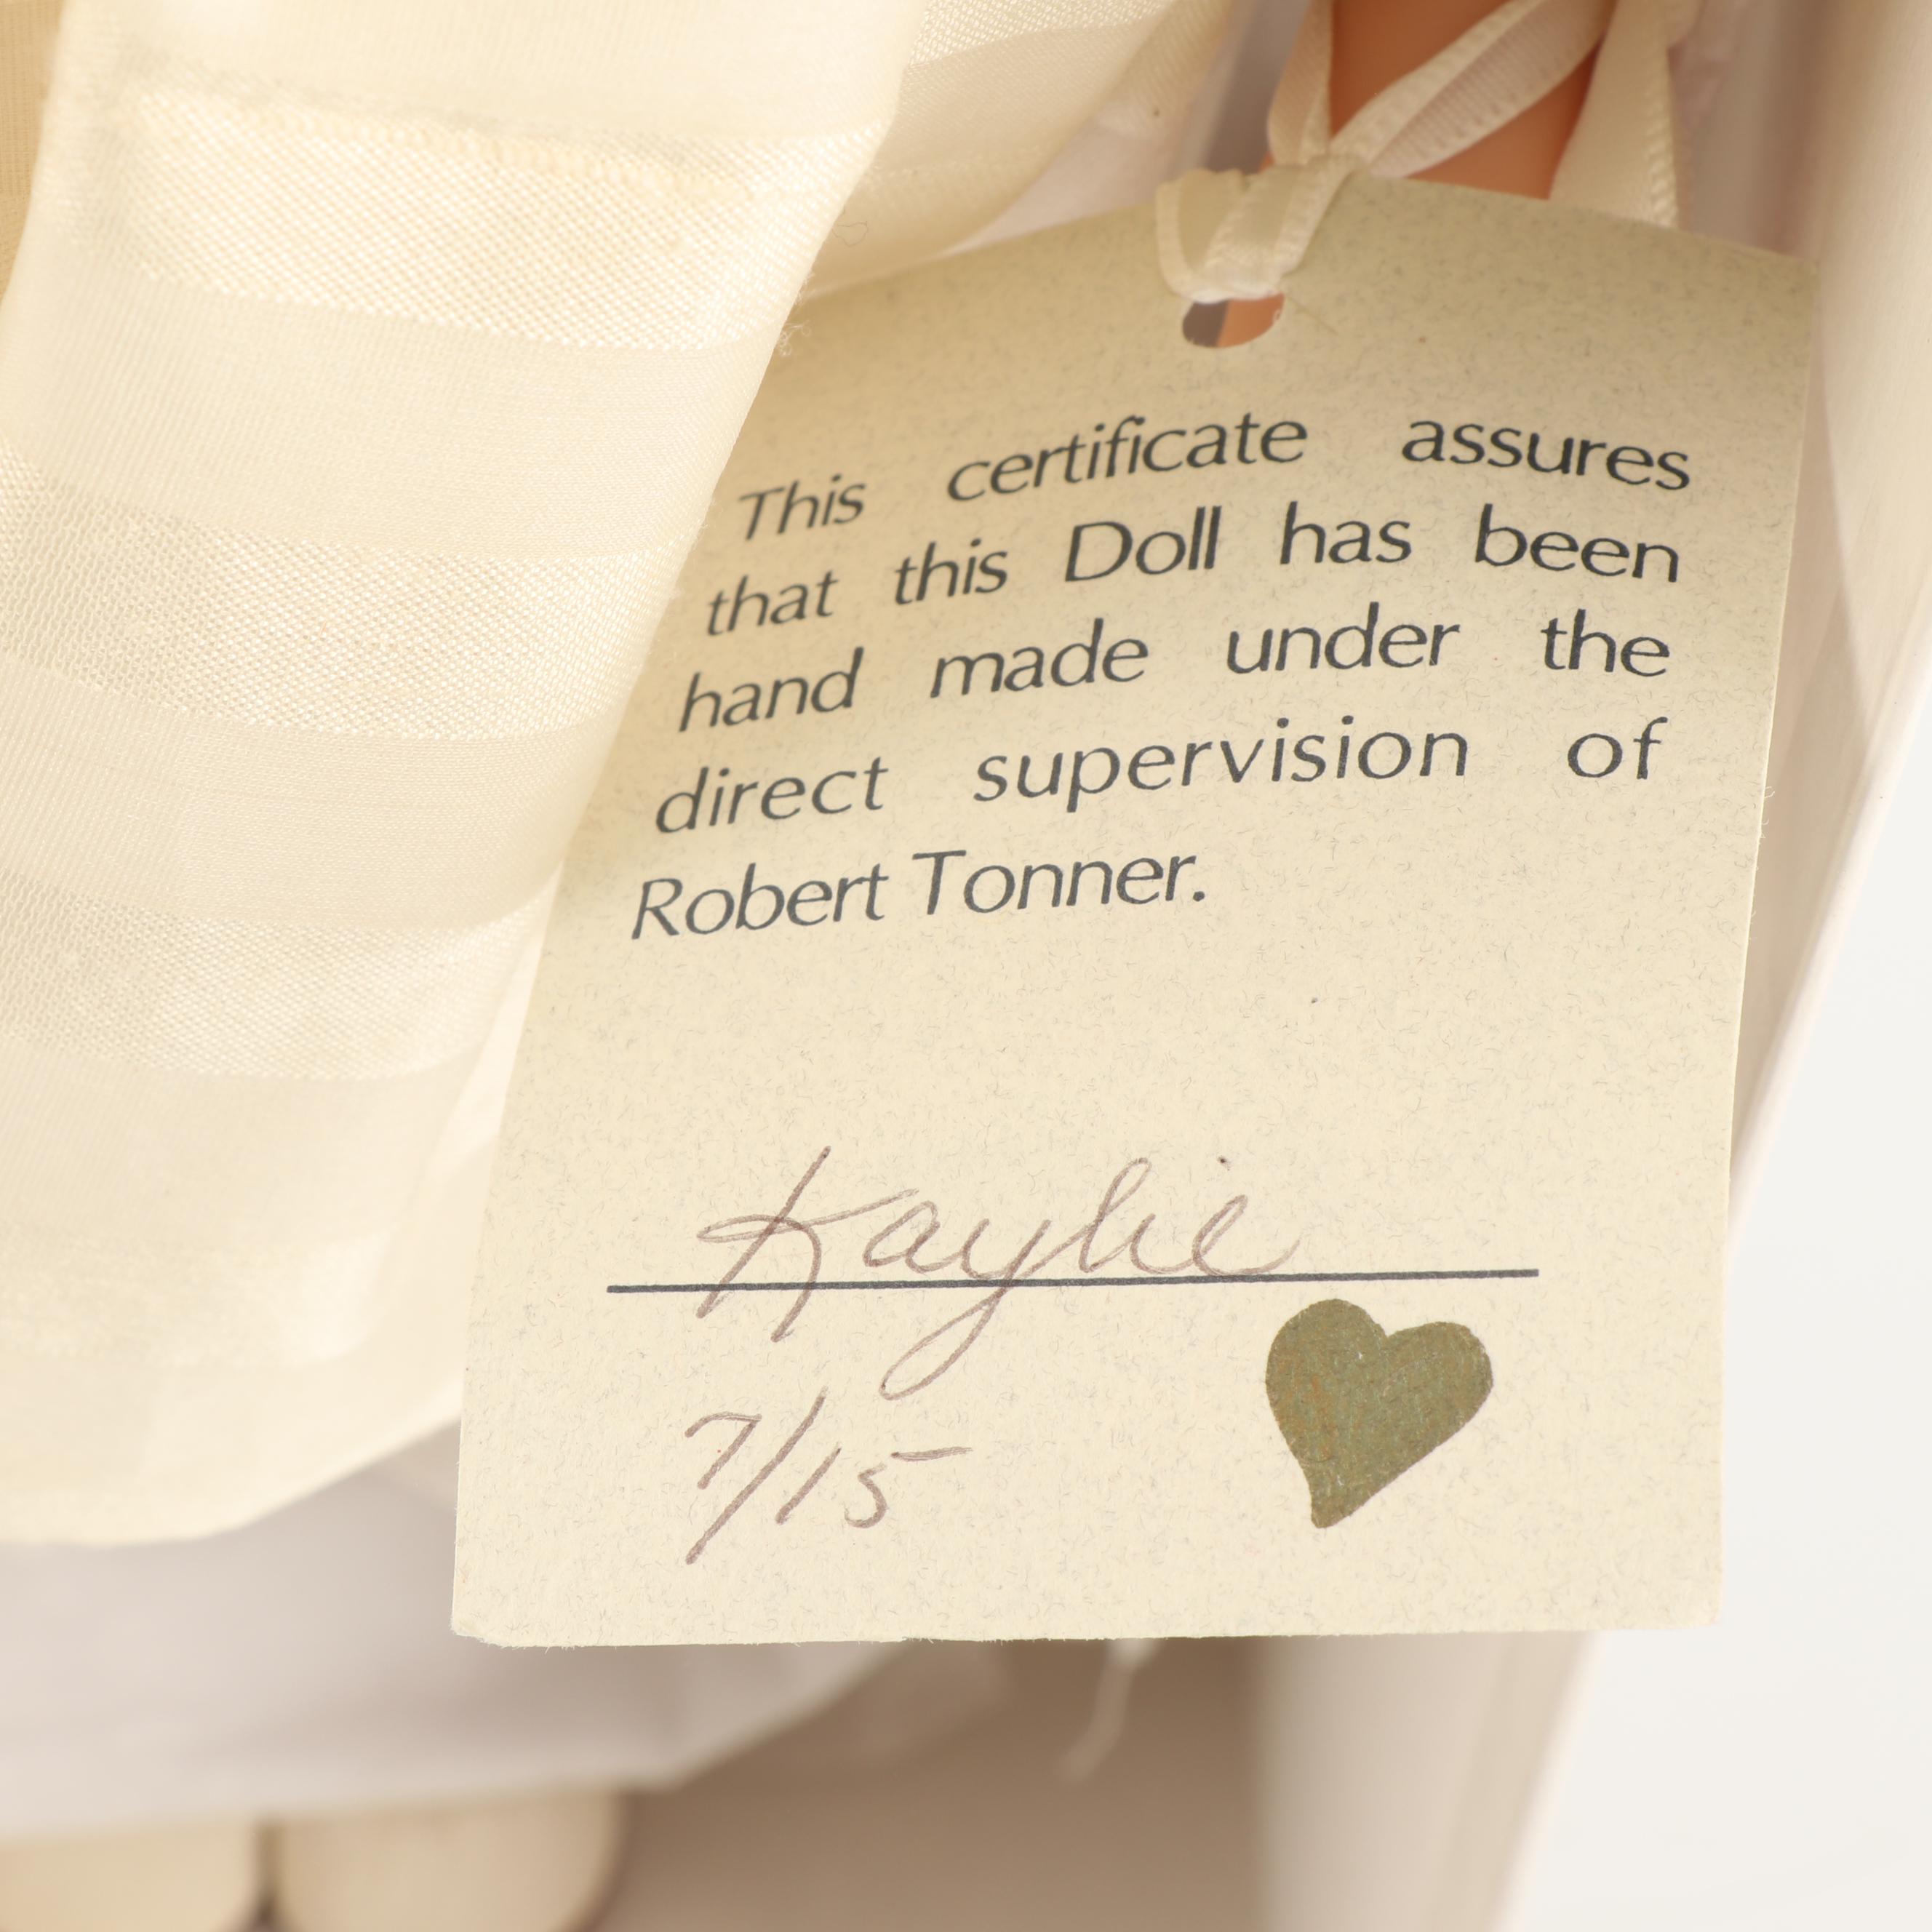 This certificate assures
that this Doll has been
hand made under the
direct supervision of
Robert Tonner.
Kaylie
7/15